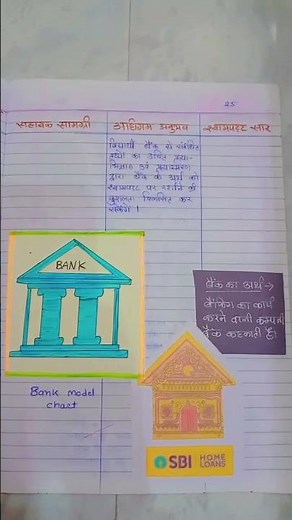 25
सहायक सामग्री
अधिगम अनुभव
श्यामपट्ट सार
विद्यार्थी बैंक से संबंधित
तथ्यों का उचित प्रत्या-
स्मरण एवं
द्वारा बैंक के अर्थ को
श्यामपट पर
कुशलता विकसित कर
सकेंगे ।
BANK
Bank model
chart
बैंक का अर्थ →
बैंकिंग का कार्य
करने वाली कम्पनी
बैंक कहलाती है।
SBI HOME
LOANS